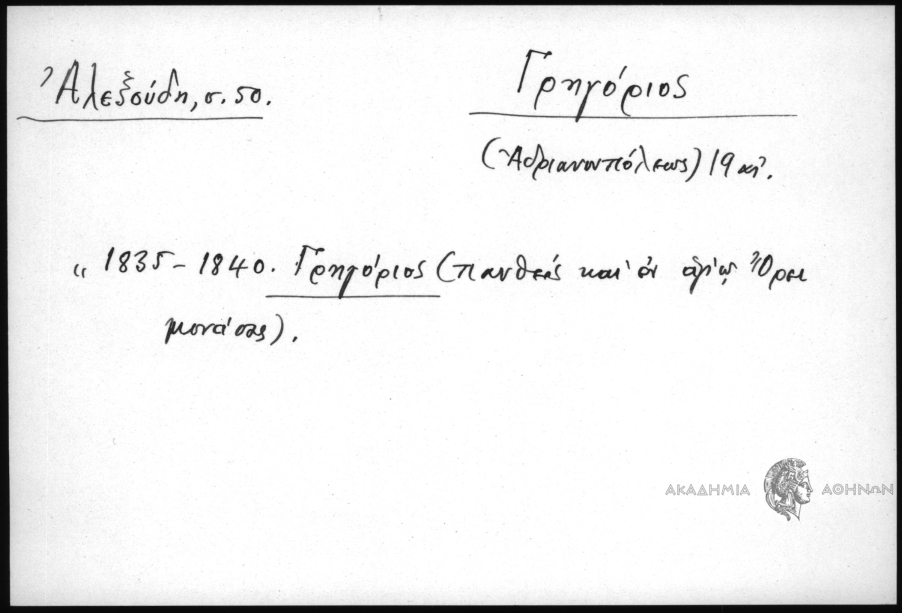 Ἀλεξούδη, σ. 50.
Γρηγόριος
(Ἀδριανουπόλεως) 19 αἰ.
“ 1835 – 1840. Γρηγόριος (παυθεὶς καὶ ἐν ἁγίῳ Ὄρει
μονάσας).
ΑΚΑΔΗΜΙΑ ΑΘΗΝΩΝ